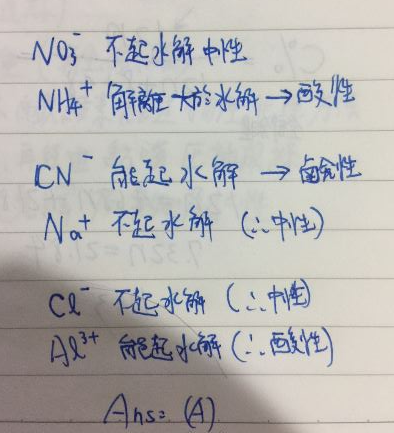 NO₃⁻ 不起水解 中性
NH₄⁺ 解離大於水解 → 酸性
CN⁻ 能起水解 → 鹼性
Na⁺ 不起水解 (∴中性)
Cl⁻ 不起水解 (∴中性)
Al³⁺ 能起水解 (∴酸性)
Ans: (A)